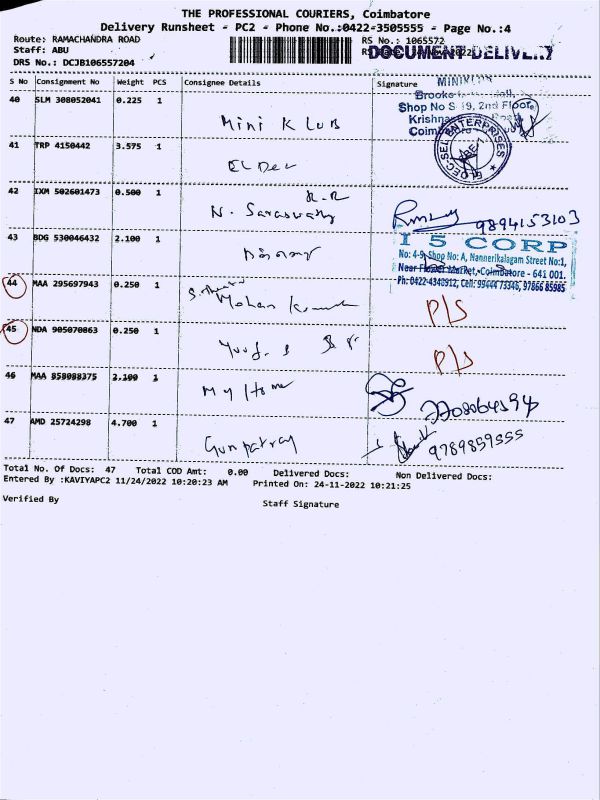 THE PROFESSIONAL COURIERS, Coimbatore
Delivery Runsheet - PC2 - Phone No.:0422-3505555 - Page No.:4
Route: RAMACHANDRA ROAD
RS No.: 1065572
Staff: ABU
DOCUMENT DELIVERY
DRS No.: DCJB106557204
S No Consignment No Weight PCS Consignee Details Signature
40 SLM 308052041 0.225 1 Mini K LUB
Shop No S 19, 2nd Floor,
41 TRP 4150442 3.575 1 EL Dec
ELDEC-SEL ENTERPRISES
42 IXM 502601473 0.500 1 N. Saraswathy R.R
9894153103
43 BDG 530046432 2.100 1
I 5 CORP
No: 4-9, Shop No: A, Nannerikalagam Street No:1,
Near Flower Market, Coimbatore - 641 001.
Ph: 0422-4340912, Cell: 99444 73348, 97866 85985
44 MAA 295697943 0.250 1 Mohan Kumar P/S
45 NDA 905070863 0.250 1 P/S
46 MAA 858088375 2.100 1 My Home
47 AMD 25724298 4.700 1 Gunpatray 9789859555
Total No. Of Docs: 47 Total COD Amt: 0.00 Delivered Docs: Non Delivered Docs:
Entered By :KAVIYAPC2 11/24/2022 10:20:23 AM Printed On: 24-11-2022 10:21:25
Verified By Staff Signature